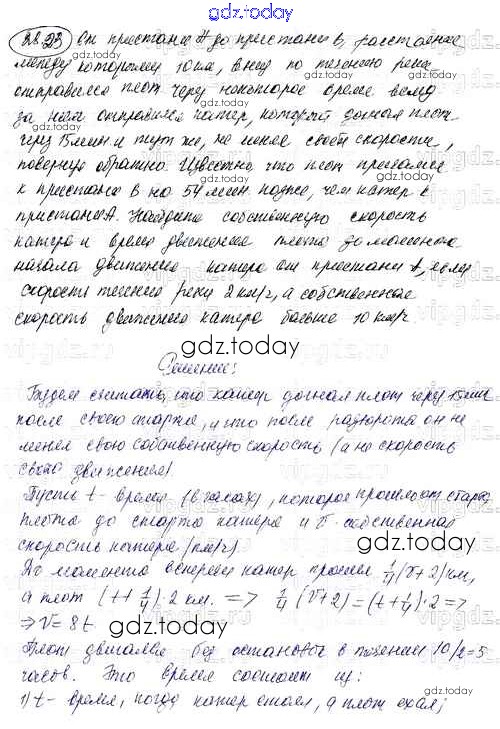 gdz.today
28.23 От пристани A до пристани B, расстояние
между которыми 10 км, вниз по течению реки
отправился плот. Через некоторое время вслед
за ним отправился катер, который догнал плот
через 15 мин и тут же, не меняя своей скорости,
повернул обратно. Известно, что плот прибыл
к пристани B на 54 мин позже, чем катер к
пристани A. Найдите собственную скорость
катера и время движения плота до момента
начала движения катера от пристани A, если
скорость течения реки 2 км/ч, а собственная
скорость движения катера больше 10 км/ч.
gdz.today
Решение:
Будем считать, что катер догнал плот через 15 мин
после своего старта, и что после разворота он не
менял свою собственную скорость (а не скорость
своего движения).
Пусть t - время (в часах), которое прошло от старта
плота до старта катера и v - собственная
скорость катера (км/ч).
До момента встречи катер прошел 1/4 (v+2) км,
а плот (t+1/4)·2 км. => 1/4 (v+2) = (t+1/4)·2 =>
=> v = 8t.
Плот двигался без остановок в течении 10/2=5
часов. Это время состоит из:
1) t - время, когда катер стоял, а плот ехал;